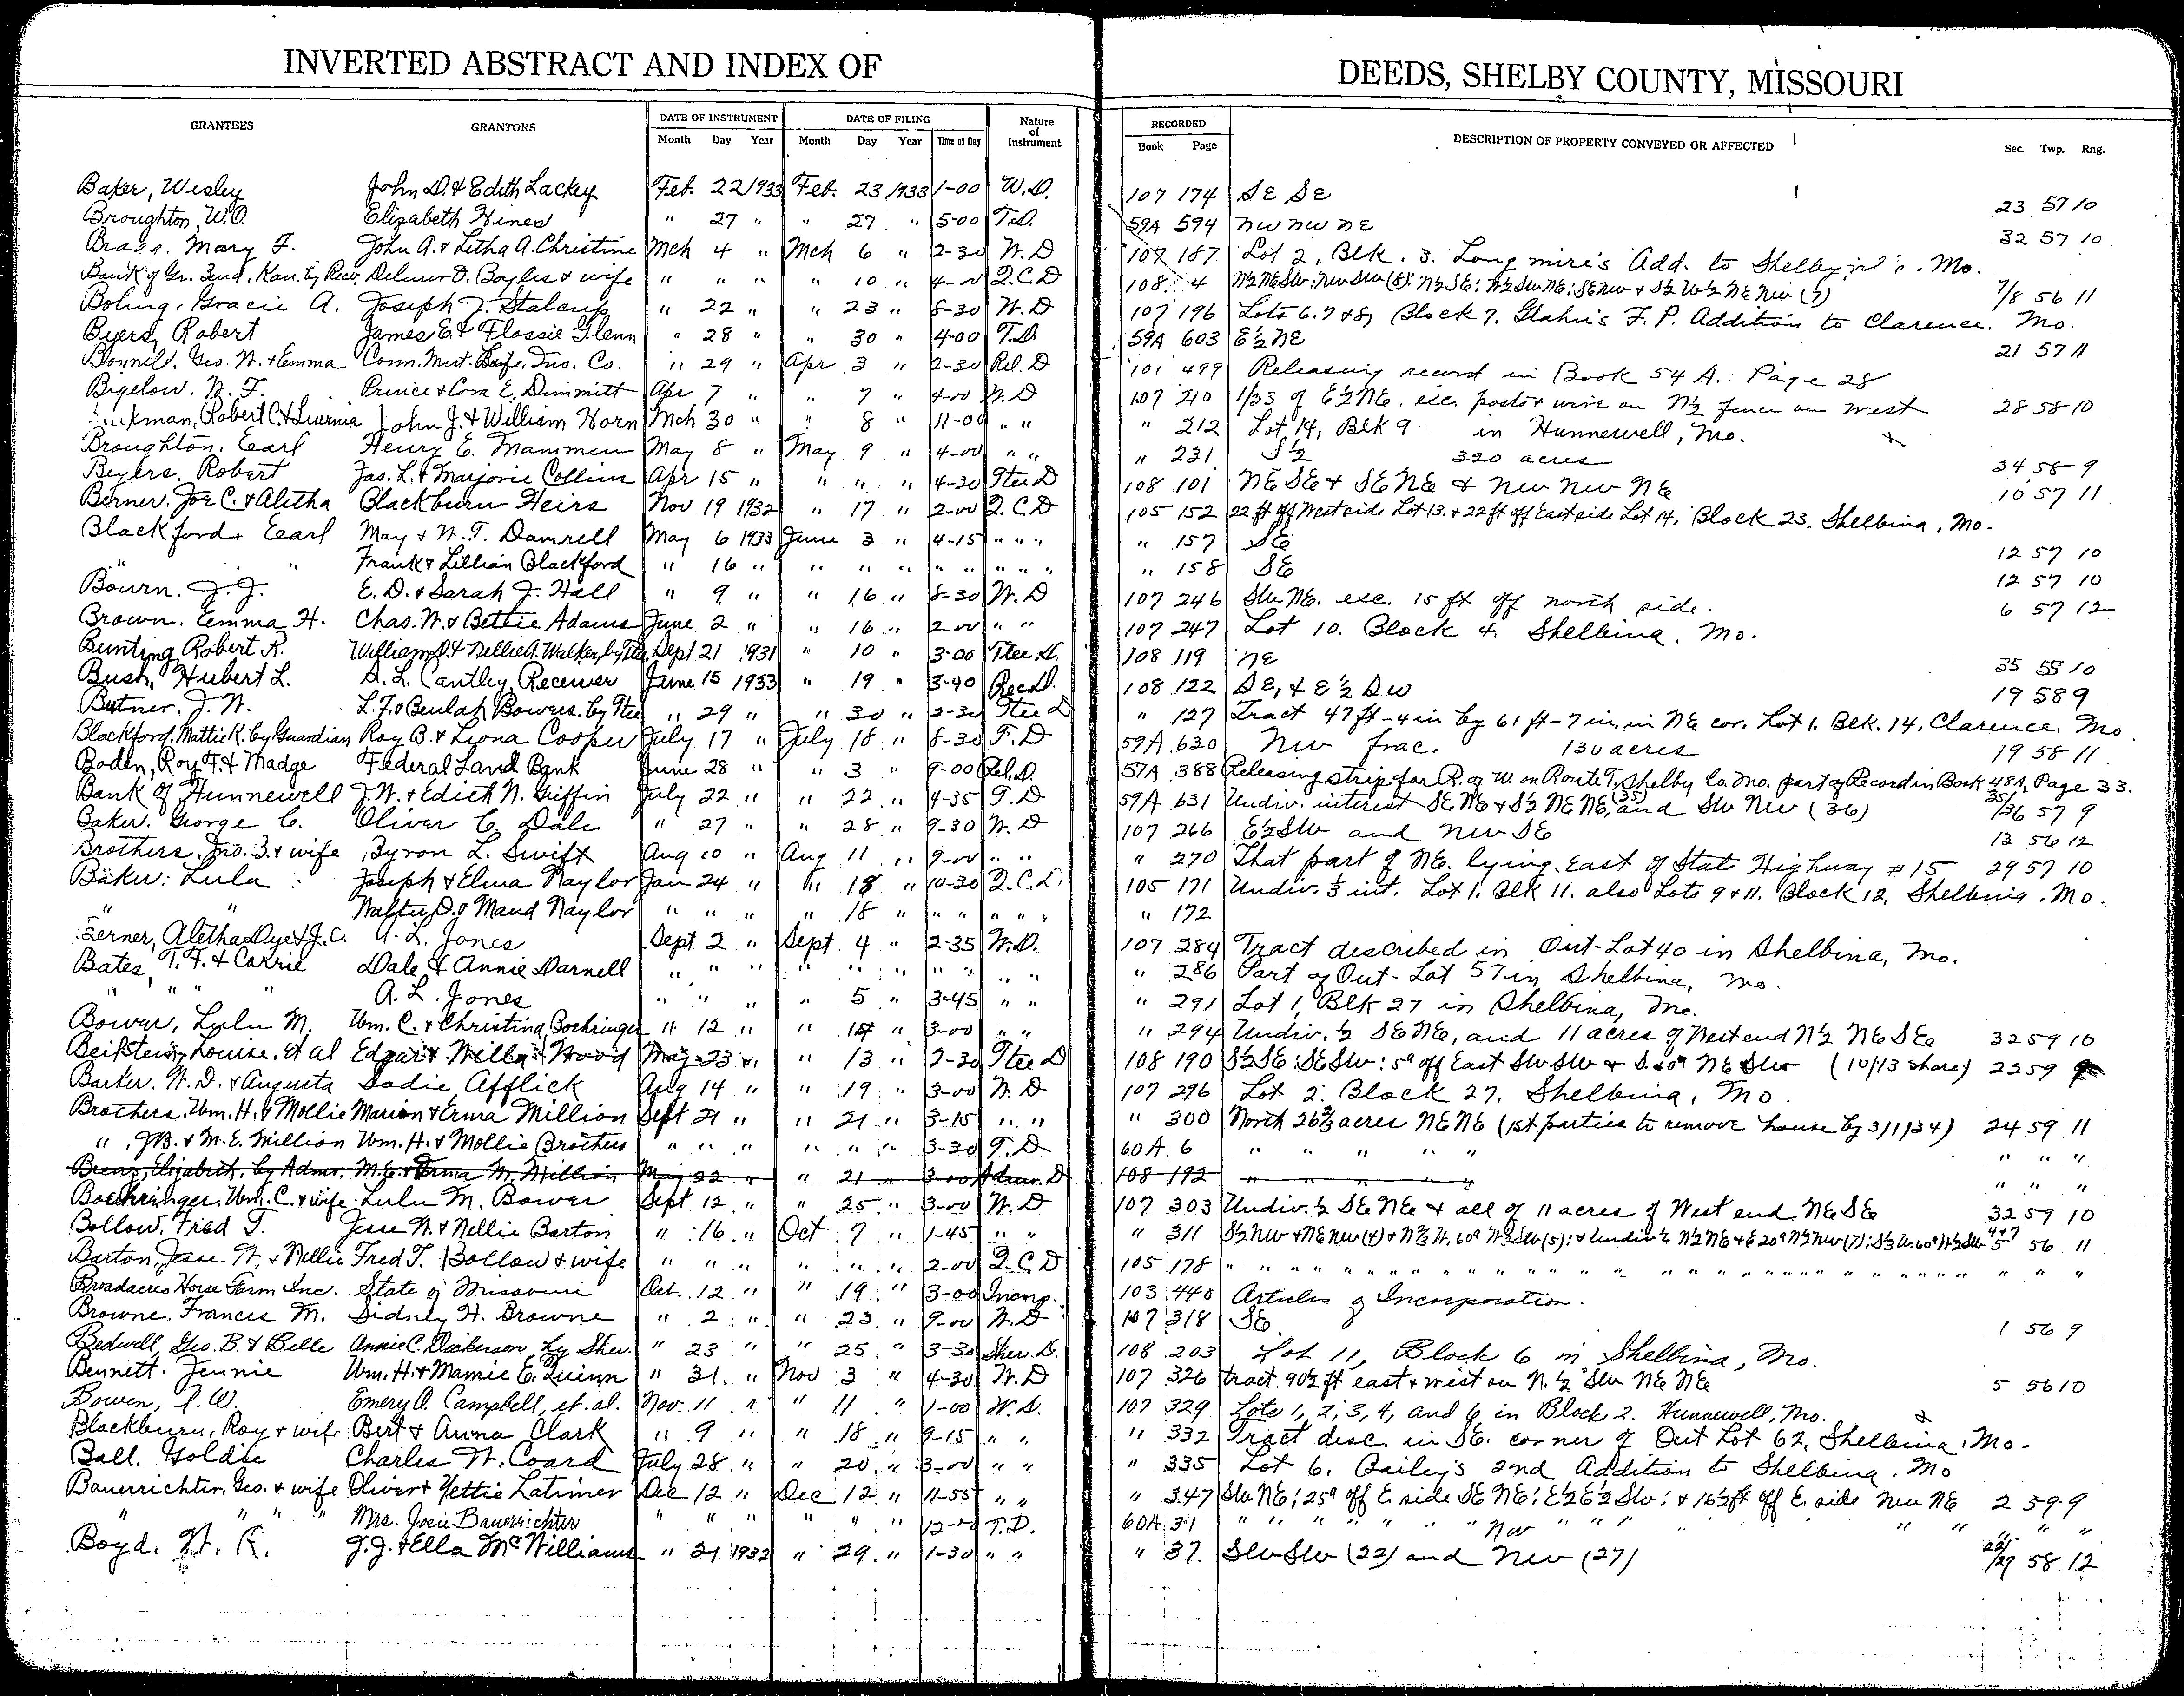 INVERTED ABSTRACT AND INDEX OF DEEDS, SHELBY COUNTY, MISSOURI
GRANTEES GRANTORS DATE OF INSTRUMENT DATE OF FILING Nature of Instrument RECORDED DESCRIPTION OF PROPERTY CONVEYED OR AFFECTED Sec. Twp. Rng.
Month Day Year Month Day Year Time of Day Book Page
Baker, Wesley John D. & Edith Lackey Feb. 22 1933 Feb. 23 1933 1-00 W.D. 107 174 SE SE 23 57 10
Broughton, W.O. Elizabeth Hines " 27 " " 27 " 5-00 T.D. 59A 594 NW NW NE 32 57 10
Bragg, Mary F. John A. & Letha A. Christine Mch 4 " Mch 6 " 2-30 W.D 107 187 Lot 2, Blk. 3. Longmire's Add. to Mo.
Bank of Kan. by Recv. Delmer D. Boyles & wife " " " " 10 " Q.C.D 108 4 N½ NE SW; NW SW (8); N½ SE; N½ SW NE; SE NW & S½ W½ NE NW (7) 7/8 56 11
Boling, Gracie A. Joseph J. Stalcup " 22 " " 23 " 8-30 W.D 107 196 Lots 6. 7 & 8, Block 7. F. P. Addition to Clarence. Mo.
Byers, Robert James E. & Flossie Glenn " 28 " " 30 " 4-00 T.D. 59A 603 E½ NE 21 57 11
Bonnell, Geo. W. & Emma Conn. Mut. Life. Ins. Co. " 29 " Apr 3 " 2-30 Rel. D 101 499 Releasing record in Book 54 A. Page 28
Bigelow. W. F. Prince & Cora E. Dimmitt Apr 7 " " 7 " 4-00 W.D 107 210 1/33 of E½ NE. exc. post & wire on N½ fence on west 28 58 10
Robert C. & John J. & William Horn Mch 30 " " 8 " 11-00 " " " 212 Lot 14, Blk 9 in Hunnewell, Mo. x
Broughton, Earl Henry E. Mammen May 8 " May 9 " 4-00 " " " 231 S½ 320 acres 34 58 9
Beyers, Robert Jas. L. & Marjorie Collins Apr 15 " " " " 4-30 Stee D 108 101 NE SE & SE NE & NW NW NE 10 57 11
Berner, Joe C. & Aletha Blackburn Heirs Nov 19 1932 " 17 " 2-00 Q.C.D 105 152 22 ft off West side Lot 13. & 22 ft off East side Lot 14, Block 23. Shelbina, Mo.
Blackford, Earl May & W. T. Damrell May 6 1933 June 3 " 4-15 " " " " 157 SE 12 57 10
" " Frank & Lillian Blackford " 16 " " " " " " " " " " 158 SE 12 57 10
Bourn. J. J. E. D. & Sarah J. Hall " 9 " " 16 " 8-30 W.D 107 246 SW NE. exc. 15 ft off north side. 6 57 12
Brown. Emma H. Chas. W. & Bettie Adams June 2 " " 16 " 2-00 " " 107 247 Lot 10. Block 4. Shelbina, Mo.
Bunting, Robert R. William D. & Nellie A. Walker, by Tte, Sept 21 1931 " 10 " 3-00 Ttee. D. 108 119 NE 35 58 10
Bush, Hubert L. D. L. Cantley Receiver June 15 1933 " 19 " 3-40 Rec. D. 108 122 SE, & E½ SW 19 58 9
Butner, J. W. L. F. & Beulah Bowers. by Ttee " 29 " " 30 " 2-30 Ttee D " 127 Tract 47 ft-4 in by 61 ft-7 in. in NE cor. Lot 1. Blk. 14, Clarence, Mo
Blackford, Mattie K. by Guardian Roy B. & Leona Cooper July 17 " July 18 " 8-30 T.D 59A 620 NW frac. 130 acres 19 58 11
Boden, Roy F. & Madge Federal Land Bank June 28 " " 3 " 9-00 Rel. D. 57A 388 Releasing strip for R. of W on Route T, Shelby Co. Mo. part of Record in Book 48A, Page 33.
Bank of Hunnewell J. W. & Edith N. Griffin July 22 " " 22 " 4-35 T.D 59A 631 Undiv. interest SE NE & S½ NE NE, (35) and SW NW (36) 35/36 57 9
Baker, George C. Oliver C. Dale " 27 " " 28 " 9-30 W.D 107 266 E½ SW and NW SE 13 56 12
Brothers, Jno. B. & wife Byron L. Swift Aug 10 " Aug 11 " 9-00 " " " 270 That part of NE. lying East of State Highway #15 29 57 10
Baker, Lula Joseph & Elma Naylor Jan 24 " " 18 " 10-30 Q.C.D. 105 171 Undiv. ⅓ int. Lot 1. Blk 11. also Lots 9 & 11. Block 12, Shelbina, Mo.
" " Walter D. & Maud Naylor " " " " 18 " " " " " " " 172
Aletha Dye & J. C. A. L. Jones Sept. 2 " Sept. 4 " 2-35 W.D. 107 284 Tract described in Out-Lot 40 in Shelbina, Mo.
Bates, T. F. & Carrie Dale & Annie Darnell " " " " " " " " " " " 286 Part of Out-Lot 57 in Shelbina, Mo.
" " " " A. L. Jones " " " " 5 " 3-45 " " " 291 Lot 1, Blk 27 in Shelbina, Mo.
Bower, Lulu M. Wm. C. & Christina Boehringer " 12 " " 14 " 3-00 " " " 294 Undiv. ½ SE NE, and 11 acres of West end N½ NE SE 32 59 10
Louise, et al Edgar & Willa Wood May 23 " " 13 " 2-30 Ttee D 108 190 S½ SE: SE SW: 5ª off East SW SW & S. 20ª NE SW (10/13 share) 22 59
Barker, W. D. & Augusta Sadie Afflick Aug 14 " " 19 " 3-00 W.D 107 296 Lot 2. Block 27, Shelbina, Mo.
Brothers, Wm. H. & Mollie Marion & Erma Million Sept 21 " " 21 " 3-15 " " " 300 North 26⅔ acres NE NE (1st parties to remove house by 3/1/34) 24 59 11
" , J.B. & M. E. Million Wm. H. & Mollie Brothers " " " " " " 3-20 T.D 60A 6 " " " " " " " "
Elizabeth, by Admr. M.E. & Erma M. Million May 22 " " 21 " 3-00 Admr. D 108 192 " " " " " "
Boehringer, Wm. C. & wife Lulu M. Bower Sept 12 " " 25 " 3-00 W.D 107 303 Undiv. ½ SE NE & all of 11 acres of West end NE SE 32 59 10
Bollow, Fred T. Jesse W. & Nellie Barton " 16 " Oct 7 " 1-45 " " " 311 56 11
Barton, Jesse W. & Nellie Fred T. Bollow & wife " " " " " " 2-00 Q.C.D 105 178 " " " " " " " " " " " " " " " "
Broadacres Horse Farm Inc. State of Missouri Oct. 12 " " 19 " 3-00 Incorp. 103 440 Articles of Incorporation.
Browne, Frances M. Sidney H. Browne " 2 " " 23 " 9-00 W.D 107 318 SE 1 56 9
Bedwell, Geo. B. & Belle Annie C. Dickerson, by Sher. " 23 " " 25 " 3-30 Sher. D. 108 203 Lot 11, Block 6 in Shelbina, Mo.
Bennett, Jennie Wm. H. & Mamie E. Quinn " 31 " Nov 3 " 4-30 W.D 107 326 tract 90½ ft east & west on N. ½ SW NE NE 5 56 10
Bowen, I. W. Emery A. Campbell, et. al. Nov. 11 " " 11 " 1-00 W.D. 107 329 Lots 1, 2, 3, 4, and 6 in Block 2. Hunnewell, Mo. x
Blackburn, Roy & wife Bert & Anna Clark " 9 " " 18 " 9-15 " " " 332 Tract desc. in SE. corner of Out Lot 62, Shelbina, Mo.
Ball, Goldie Charles W. Coard July 28 " " 20 " 3-00 " " " 335 Lot 6. Bailey's 2nd Addition to Shelbina. Mo
Bauerrichter, Geo. & wife Oliver & Nettie Latimer Dec 12 " Dec 12 " 11-55 " " " 347 SW NE; 25ª off E. side SE NE; E½ E½ SW; & 16½ ft off E. side NW NE 2 59 9
" " " " Mrs. Josie Bauerrichter " " " " " " 12-00 T.D. 60A 31 " " " " " " " NW " " " " " " " "
Boyd, W. R. J. J. & Ella McWilliams " 21 1932 " 29 " 1-30 " " " 37 SW SW (22) and NW (27) 22/27 58 12